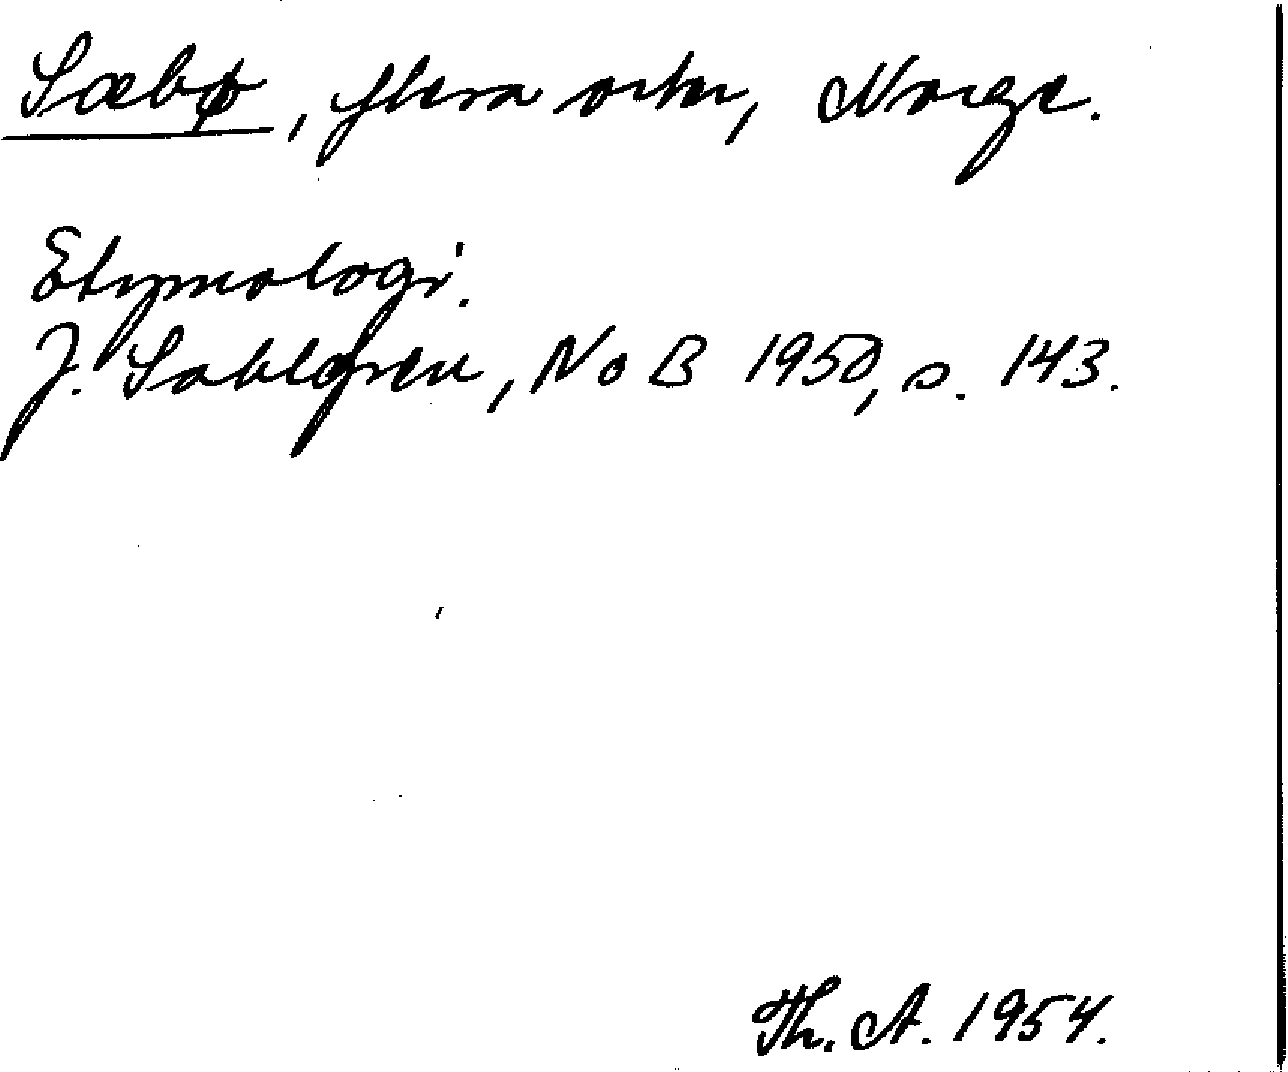 Sæbø, flera orter, Norge.
Etymologi.
J. Sahlgren, NoB 1950, s. 143.
Th. A. 1954.